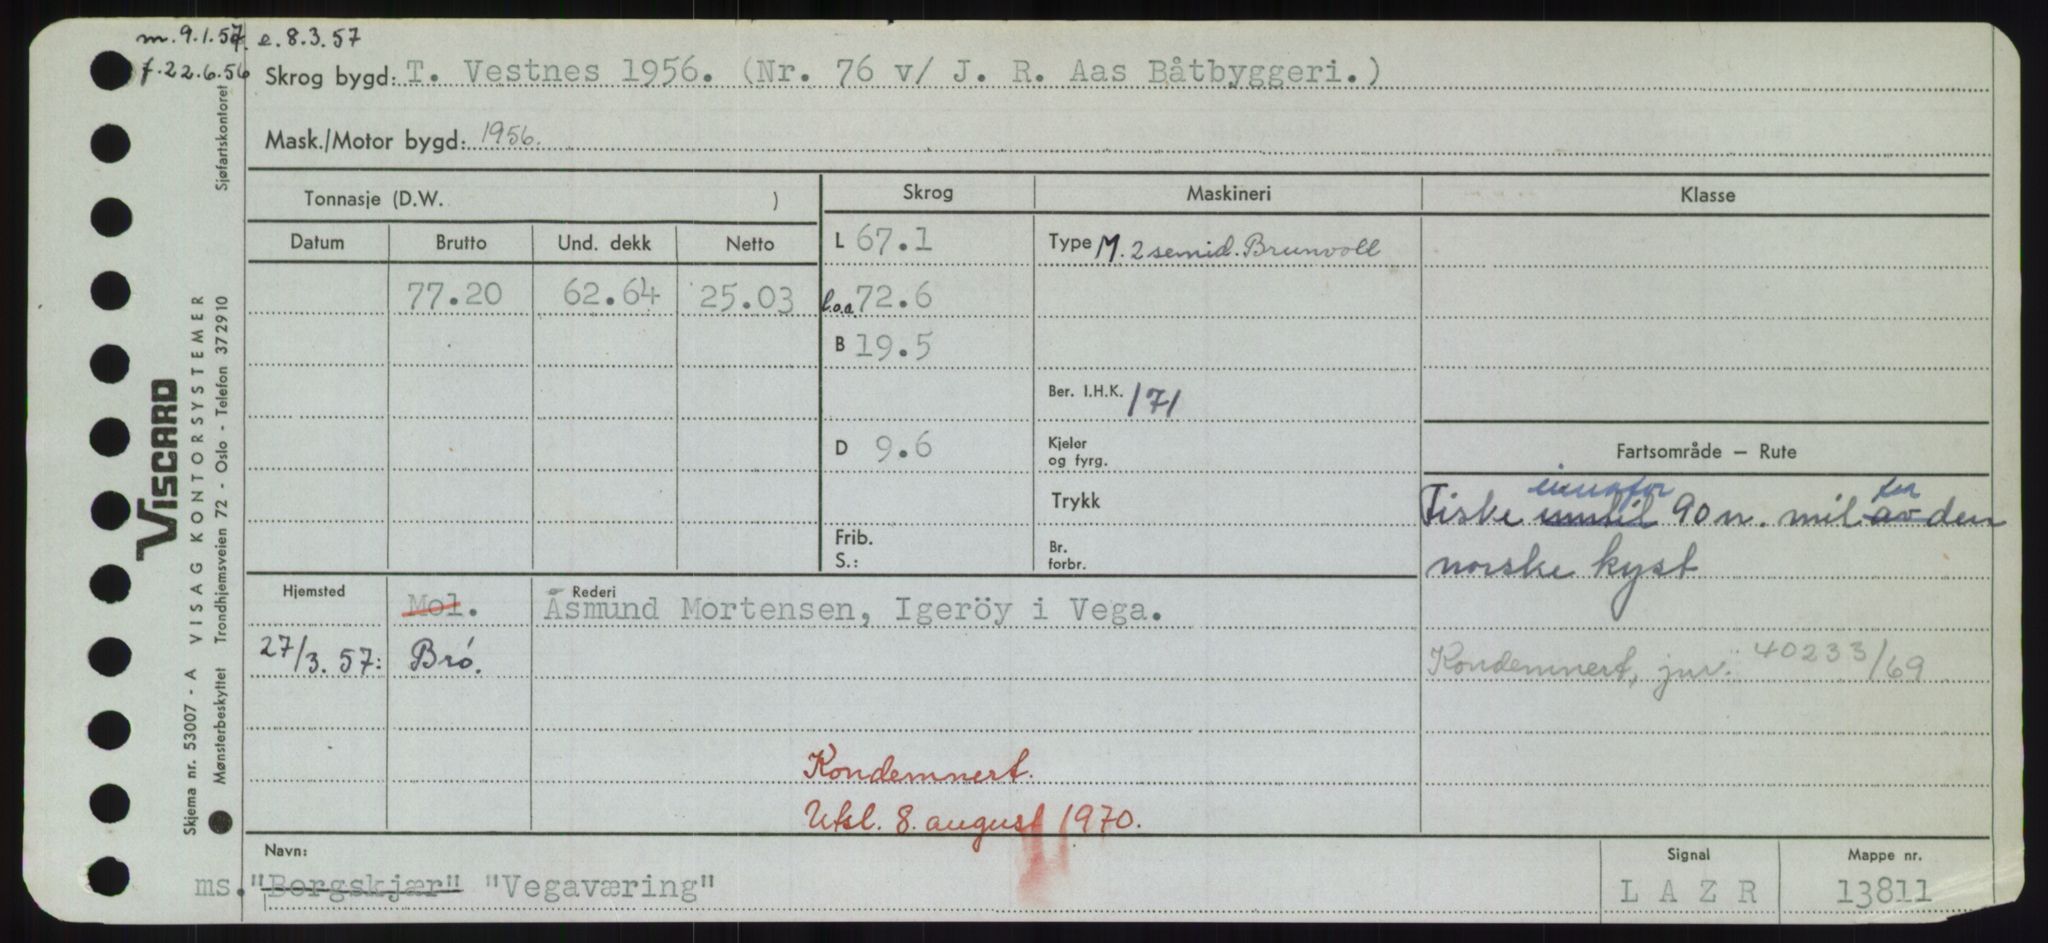 m. 9.1.57. e. 8.3.57
f. 22.6.56
Skrog bygd: T. Vestnes 1956. (Nr. 76 v/ J. R. Aas Båtbyggeri.)
Mask./Motor bygd: 1956.
Tonnasje (D.W. )
Skrog Maskineri Klasse
Datum Brutto Und. dekk Netto
L 67.1 Type M. 2 semid. Brunvoll
77.20 62.64 25.03 l.o.a. 72.6
B 19.5
Ber. I.H.K. 171
D 9.6 Kjeler
og fyrg.
Fartsområde – Rute
Trykk
innafor for
Fiske inntil 90 n. mil av den
Frib.
S.:
Br.
forbr.
norske kyst
Hjemsted Rederi
Mol. Åsmund Mortensen, Igeröy i Vega.
27/3. 57: Brö.
Kondemnert, jnr. 40233/69
Kondemnert.
Utsl. 8. august 1970.
Navn: Signal Mappe nr.
ms. "Borgskjær" "Vegaværing" L A Z R 13811
VISCARD
Skjema nr. 53007 - A VISAG KONTORSYSTEMER
Mønsterbeskyttet Trondhjemsveien 72 - Oslo - Telefon 372910 Sjøfartskontoret